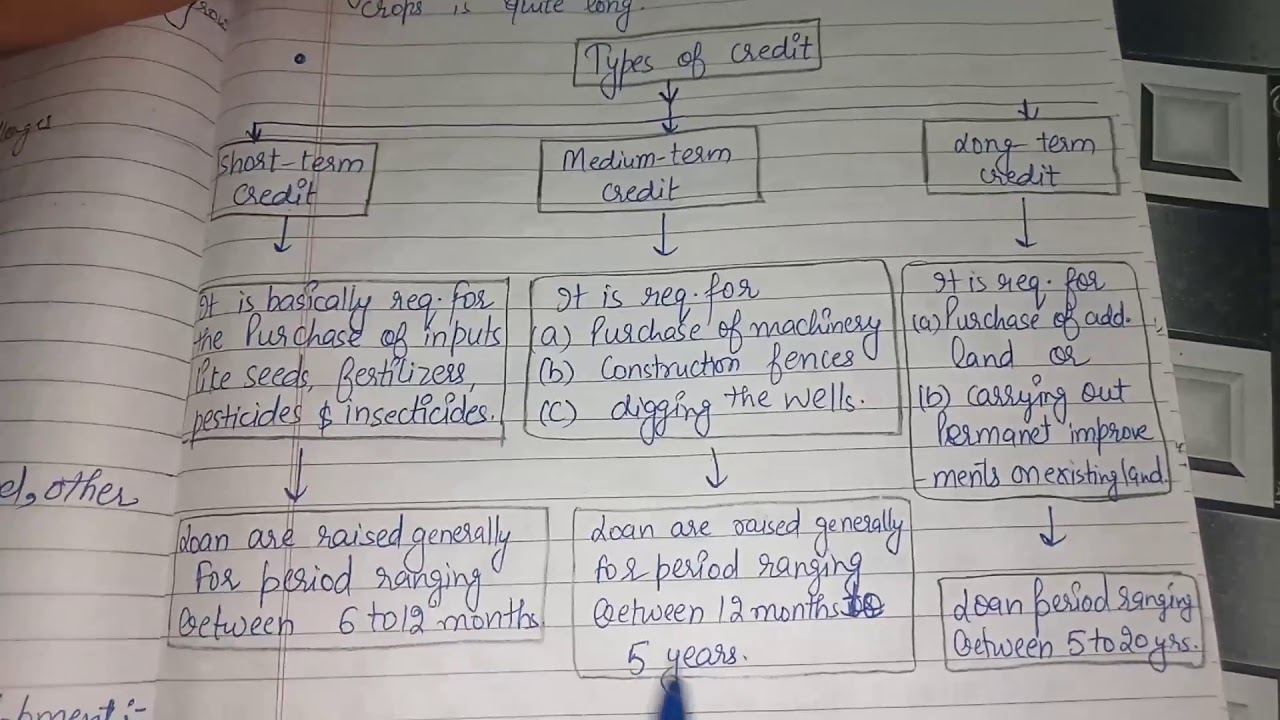 crops is quite long.
Types of credit
Short-term
credit
Medium-term
credit
Long-term
credit
It is basically req. for
the Purchase of inputs
like seeds, fertilizers,
pesticides & insecticides.
It is req. for
(a) Purchase of machinery
(b) Construction fences
(c) digging the wells.
It is req. for
(a) Purchase of add.
land or
(b) carrying out
Permanet improve
-ments on existing land.
Loan are raised generally
for period ranging
between 6 to 12 months
Loan are raised generally
for period ranging
between 12 months to
5 years.
Loan period ranging
between 5 to 20 yrs.
other